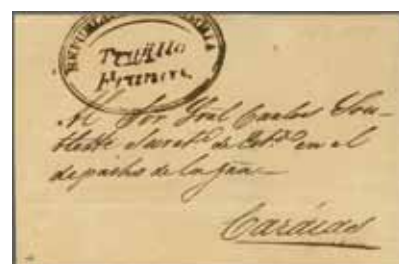 REPUBLICA
Trujillo
Franca
Al Sor Gral Carlos Sou-
blette Secreto. de Esto. en el
despacho de la gua
Carácas